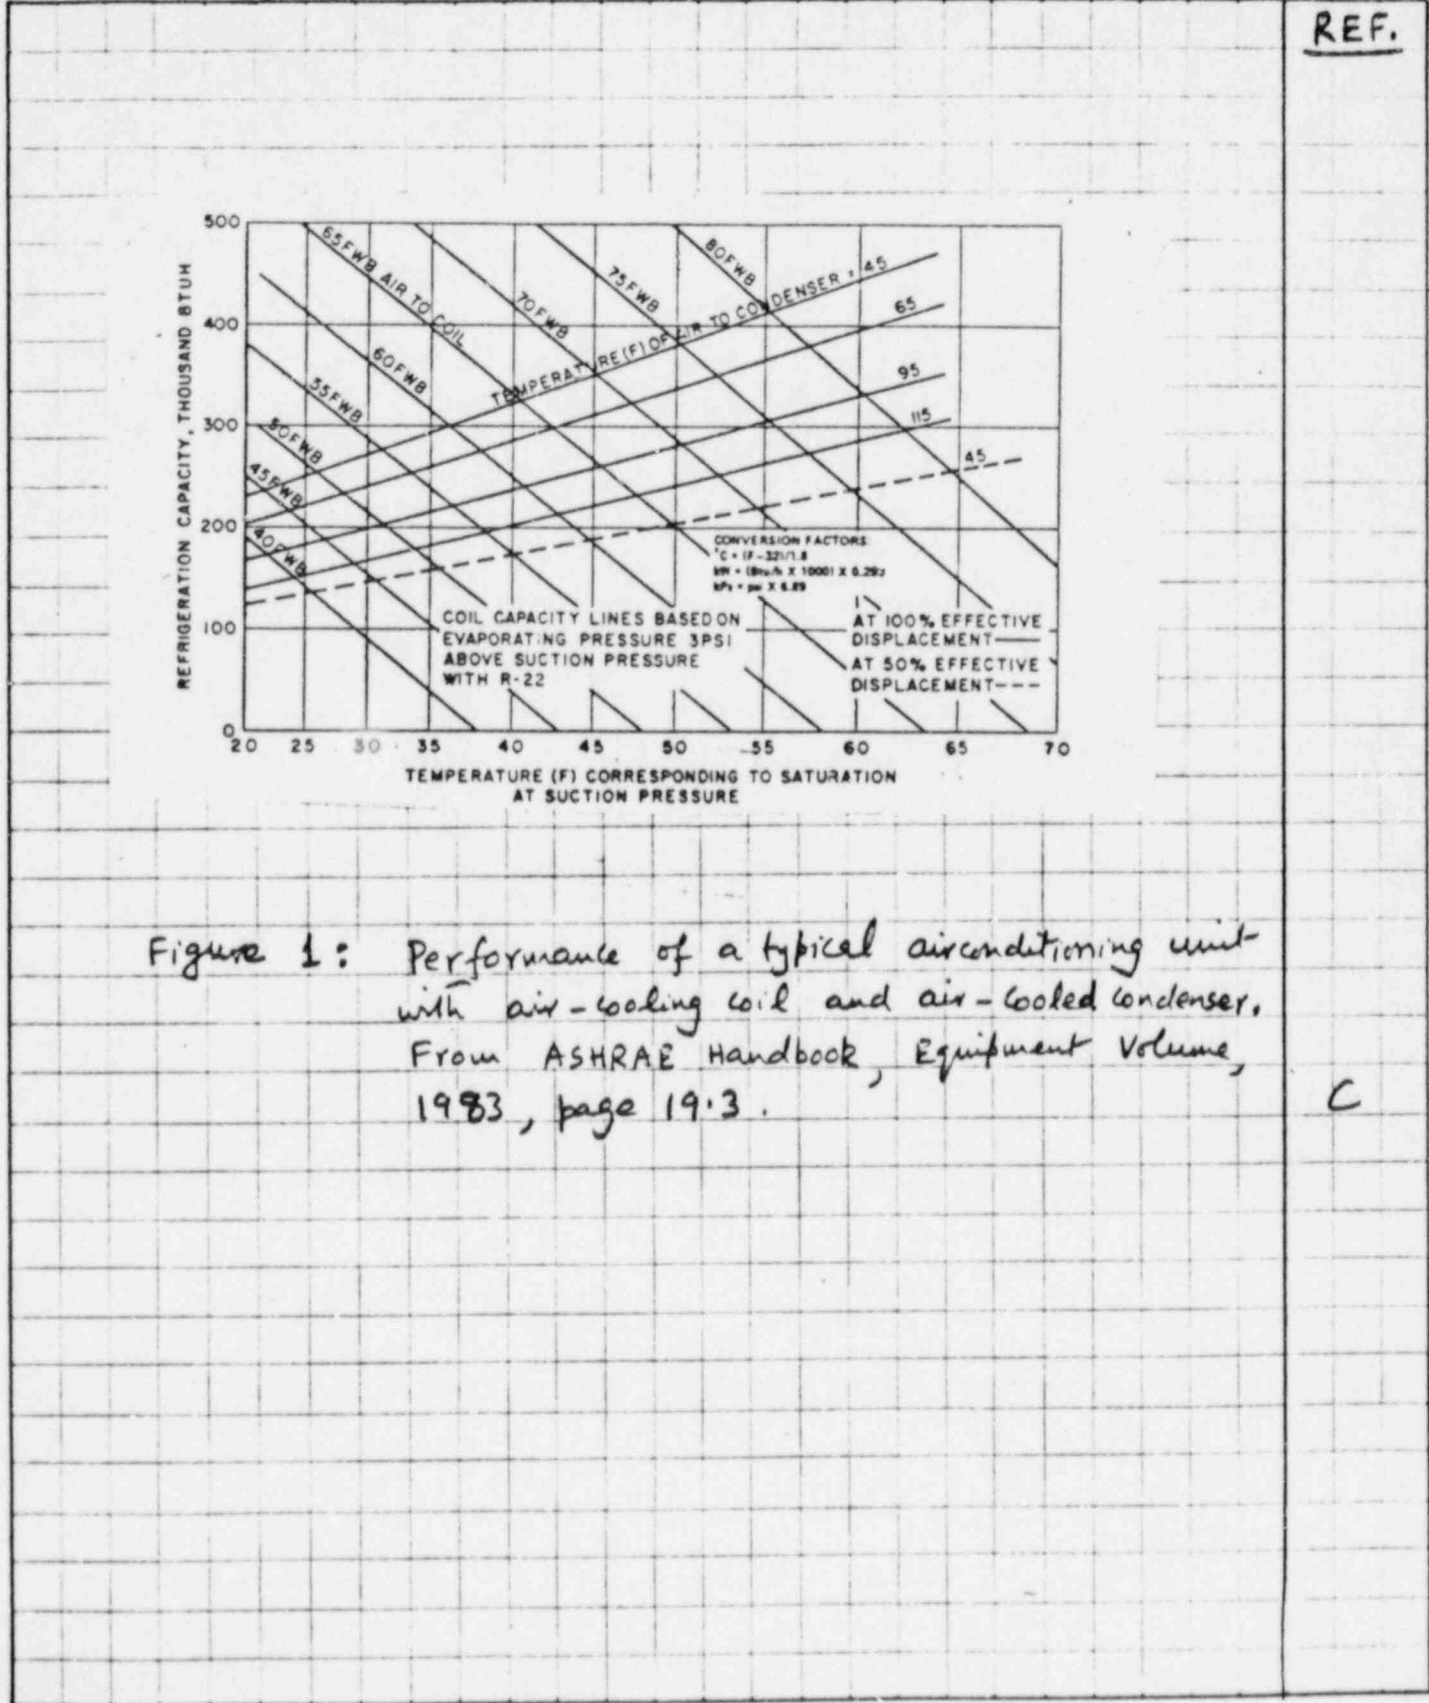 REF.
500
400
300
200
100
0
REFRIGERATION CAPACITY, THOUSAND BTUH
65FWB AIR TO COIL
70FWB
75FWB
80FWB
60FWB
55FWB
50FWB
45FWB
40FWB
TEMPERATURE (F) OF AIR TO CONDENSER = 45
65
95
115
45
CONVERSION FACTORS:
°C = (F-32)/1.8
kW = (Btu/h X 1000) X 0.293
kPa = psi X 6.89
COIL CAPACITY LINES BASED ON
EVAPORATING PRESSURE 3PSI
ABOVE SUCTION PRESSURE
WITH R-22
AT 100% EFFECTIVE
DISPLACEMENT——
AT 50% EFFECTIVE
DISPLACEMENT---
20 25 30 35 40 45 50 55 60 65 70
TEMPERATURE (F) CORRESPONDING TO SATURATION
AT SUCTION PRESSURE
Figure 1: Performance of a typical airconditioning unit
with air-cooling coil and air-cooled condenser.
From ASHRAE Handbook, Equipment Volume,
1983, page 19.3.
C